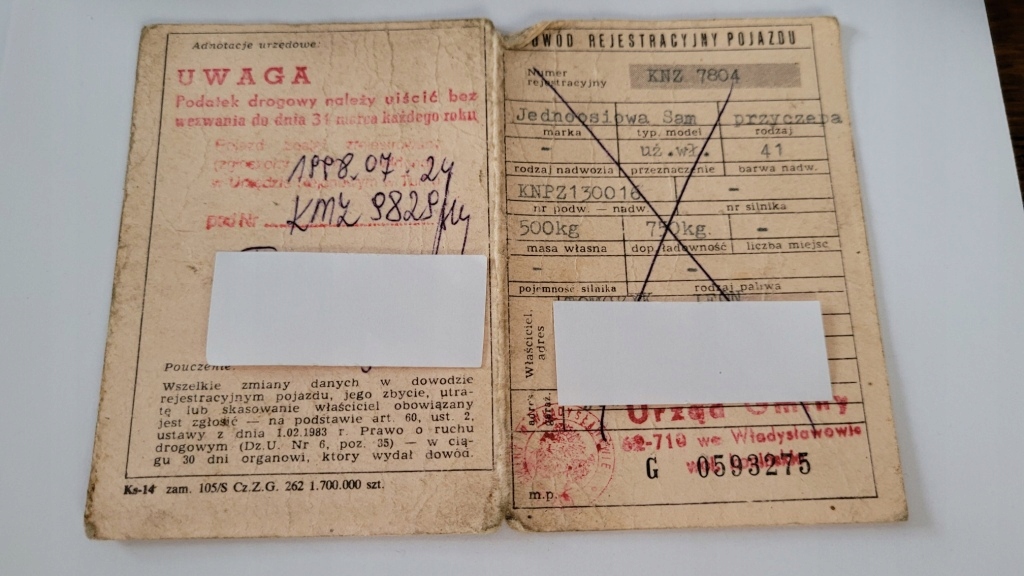 Adnotacje urzędowe:
UWAGA
Podatek drogowy należy uiścić bez
wezwania do dnia 31 marca każdego roku
1998.07.24
pod Nr KMZ 9829
Pouczenie:
Wszelkie zmiany danych w dowodzie
rejestracyjnym pojazdu, jego zbycie, utra-
tę lub skasowanie właściciel obowiązany
jest zgłosić — na podstawie art. 60, ust. 2,
ustawy z dnia 1.02.1983 r. Prawo o ruchu
drogowym (Dz.U. Nr 6, poz. 35) — w cią-
gu 30 dni organowi, który wydał dowód.
Ks-14 zam. 105/S Cz.Z.G. 262 1.700.000 szt.
DOWÓD REJESTRACYJNY POJAZDU
Numer
rejestracyjny KNZ 7804
Jednoosiowa Sam przyczepa
marka typ, model rodzaj
- uż.wł. 41
rodzaj nadwozia przeznaczenie barwa nadw.
KNPZ130016 -
nr podw. — nadw. nr silnika
500kg 750kg. -
masa własna dop. ładowność liczba miejsc
- -
pojemność silnika rodzaj paliwa
Właściciel,
adres
Urząd Gminy
62-710 we Władysławowie
G 0593275
m.p.